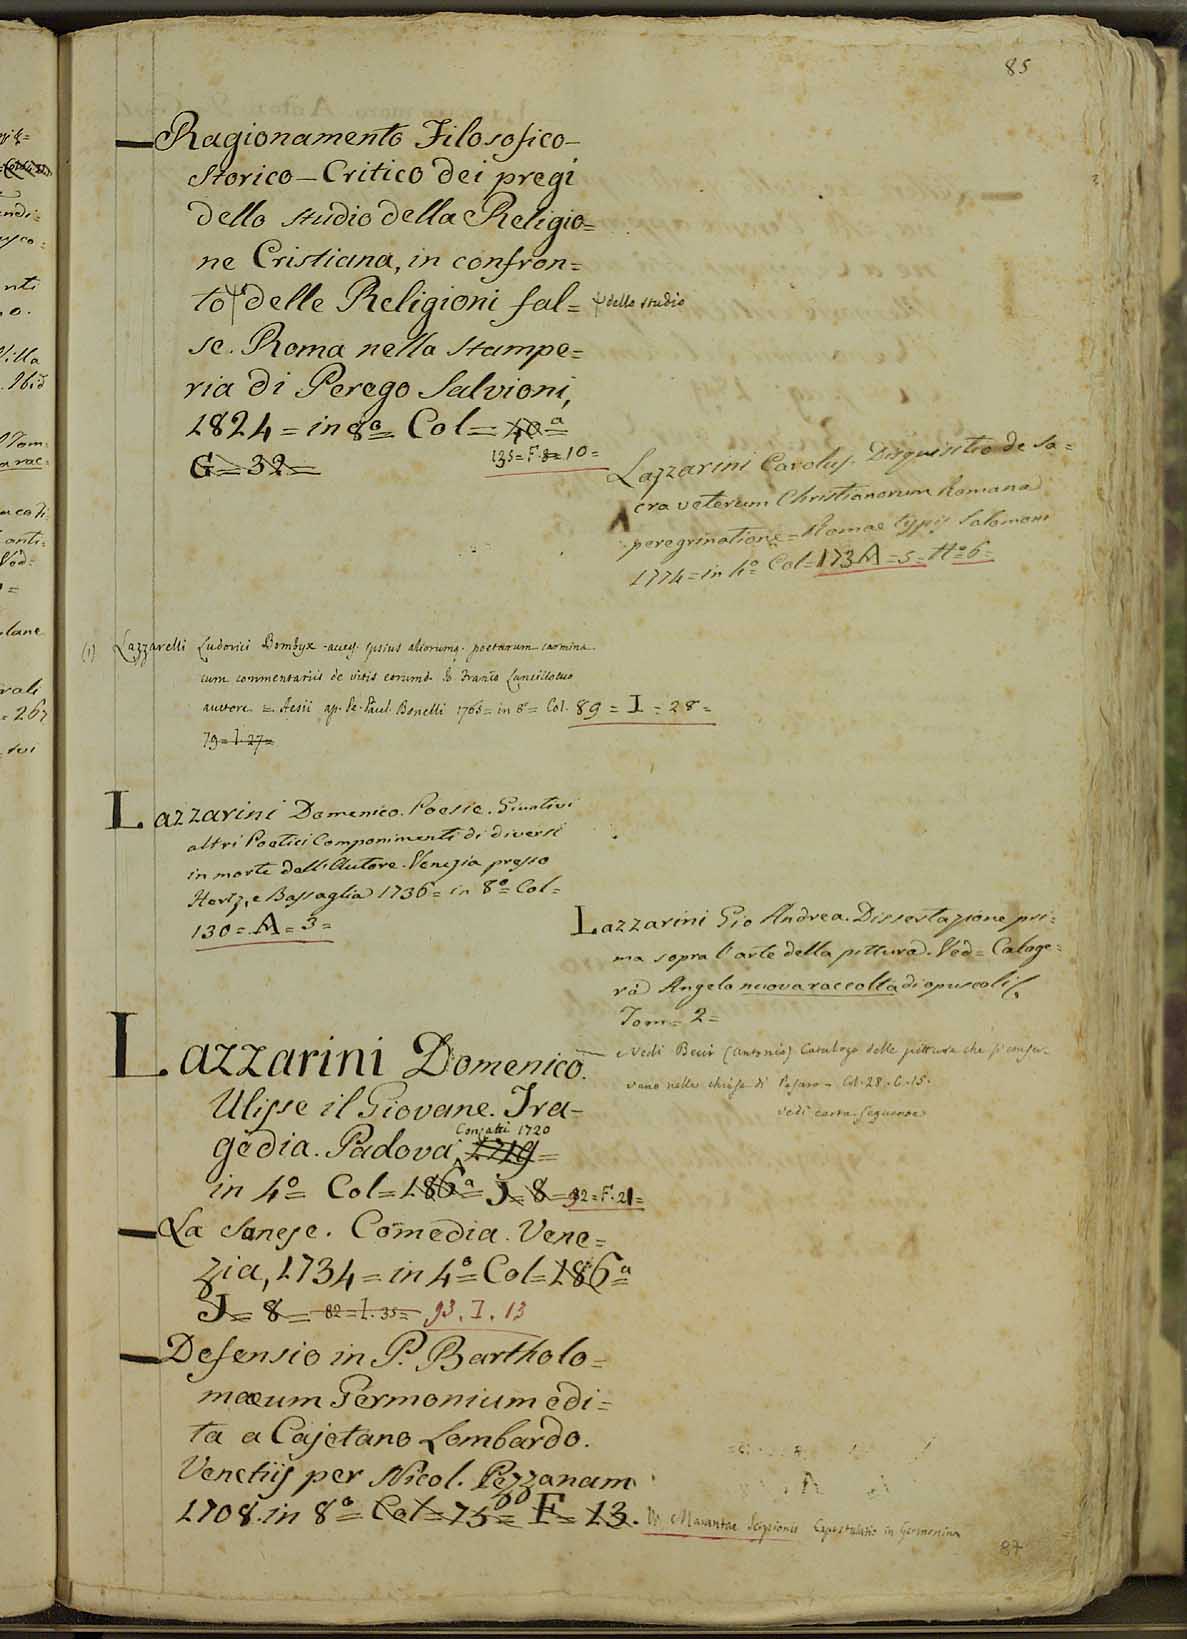 85
— Ragionamento Filosofico-
Storico-Critico dei pregi
dello studio della Religio=
ne Cristiana, in confron=
to delle Religioni fal=
dello studio
se. Roma nella stampe=
ria di Perego Salvioni,
1824 = in 8º = Col = 40ª =
G = 32 =
135 = F. 8 = 10 =
Lazzarini Carolus. Disquisitio de sa=
cra veterum Christianorum Romana
peregrinatione = Romae typis Salomoni
1774 = in 4º Col = 173 A = 5 = Hº 6 =
(1) Lazzarelli Ludovici Bombyx accey. ipsius aliorumq. poetarum carmina
cum commentariis de vitis eorumd. Jo Franco Lancillotuo
auctore = Aesii ap. Pe. Paul. Bonelli 1765 = in 8º = Col. 89 = I = 28 =
79 = I. 27 =
Lazzarini Domenico. Poesie. Giuntivi
altri Poetici Componimenti di diversi
in morte dell'Autore. Venezia presso
Hertz, e Bassaglia 1736 = in 8º = Col =
130 = A = 3 =
Lazzarini Gio Andrea. Dissertazione pri=
ma sopra l'arte della pittura. Ved = Caloge=
rà Angelo nuova raccolta di opuscoli
Tom = 2 =
— Vedi Becci (Antonio) Catalogo delle pitture che si conser-
vano nelle chiese di Pesaro - Col. 28. C. 15.
vedi carta seguente
Lazzarini Domenico.
Ulisse il Giovane. Tra-
gedia. Padova, 1719 =
Conzatti 1720
in 4º = Col = 186ª = J = 8 = 92 = F. 21 =
— La Sanese. Comedia. Vene=
zia, 1734 = in 4º = Col = 186ª
J = 8 = 82 = I. 35 = 93. I. 13
— Defensio in P. Bartholo=
maeum Germonium edi=
ta a Cajetano Lombardo.
Venetiis per Nicol. Pezzanam
1708. in 8º = Col = 75 = F = 13. Marantae Scipionis Expostulatio in Germonium
87